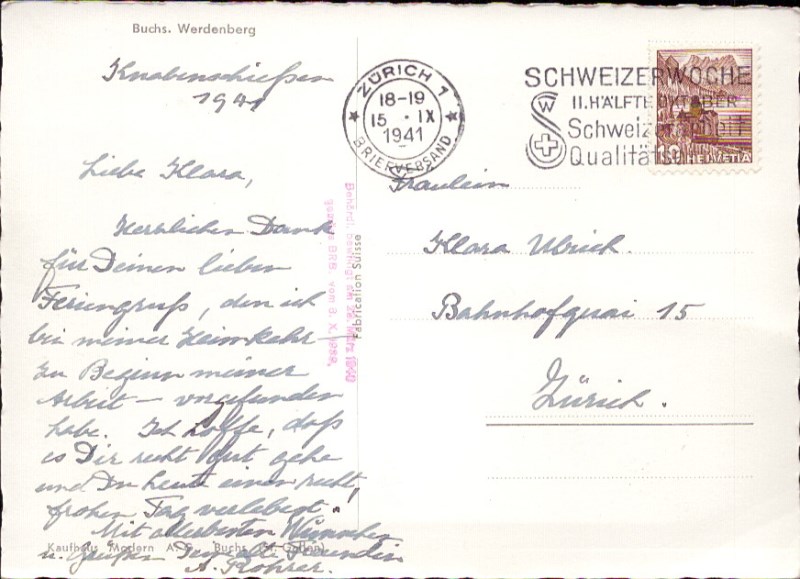 Buchs. Werdenberg
Knabenschießen
1941
Liebe Klara,
Herzlichen Dank
für Deinen lieben
Feriengruß, den ich
bei meiner Heimkehr –
zu Beginn meiner
Arbeit – vorgefunden
habe. Ich hoffe, daß
es Dir recht gut gehe
und Du heute einen recht
frohen Tag verlebest!
Mit allerbesten Wünschen
u. Grüßen Freundin
A. Rohrer.
Kaufhaus Modern A. G., Buchs (St. Gallen)
Behördl. bewilligt am 28. März 1940
gemäss BRB. vom 3. X. 1939.
Fabrication Suisse
ZÜRICH 1
18-19
15. IX
1941
BRIEFVERSAND
SCHWEIZERWOCHE
II. HÄLFTE OKTOBER
Schweizerarbeit
Qualitäts
W
10 HELVETIA
Fräulein
Klara Ulrich.
Bahnhofquai 15
Zürich.